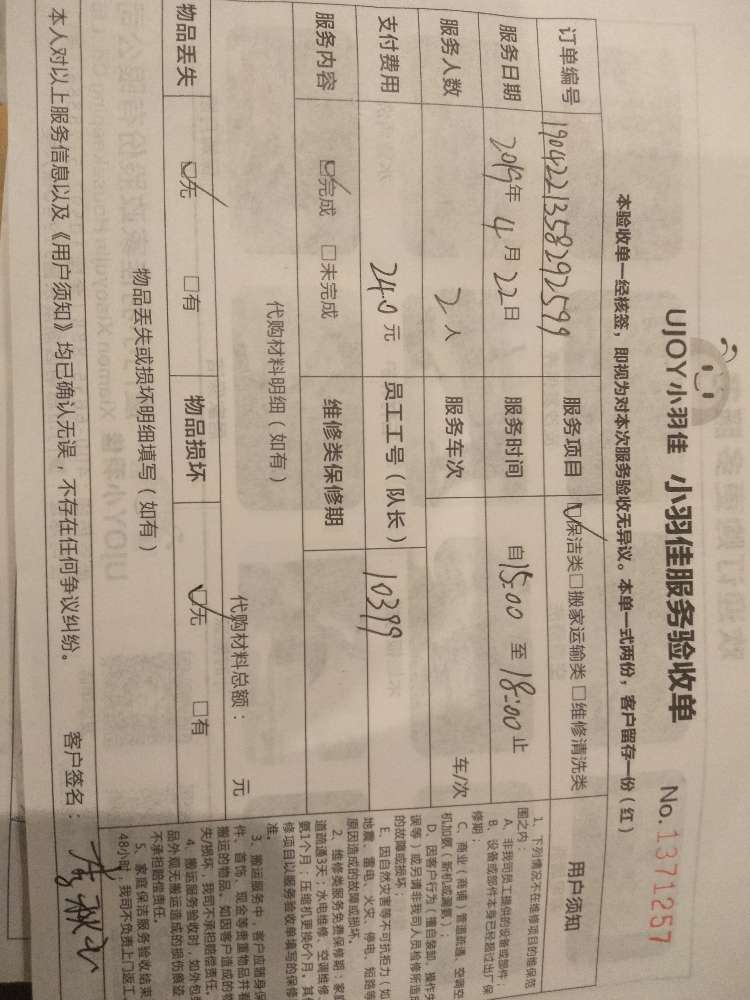 UJOY小羽佳 小羽佳服务验收单 No.1371257
本验收单一经核签，即视为对本次服务验收无异议。本单一式两份，客户留存一份（红）
订单编号 1904221358292599 服务项目 保洁类 搬家运输类 维修清洗类 用户须知
服务日期 2019年4月22日 服务时间 自15:00至18:00止
服务人数 2人 服务车次 车/次
支付费用 240元 员工工号（队长） 10399
服务内容 完成 未完成 维修类保修期
代购材料明细（如有） 代购材料总额： 元
物品丢失 无 有 物品损坏 无 有
物品丢失或损坏明细填写（如有）
本人对以上服务信息以及《用户须知》均已确认无误，不存在任何争议纠纷。 客户签名：
1、下列情况不在维修项目的维保范
围之内：
A、非我司员工提供的设备或部件；
B、设备或部件本身已经超过出厂保
修期
C、商业（商铺）管道疏通、空调空
机加氨（新机或漏氨）；
D、因客户行为（擅自装卸、操作失
误等）或另请非我司人员检修所造成
的故障或损坏；
E、因自然灾害等不可抗拒力（如
地震、雷电、火灾、停电、短路等
原因造成的故障或损坏。
2、维修类服务免费保修期：家庭
道疏通3天；水电维修、空调维修
氨1个月；压缩机更换6个月。其
修项目以服务验收单填写的保修
准。
3、搬运服务中，客户应随身保
件、首饰、现金等贵重物品并看
搬运的物品。如因客户造成的物
失/损坏，我司不承担赔偿责任。
4、搬运服务验收时，如外包装
品外观无搬运造成的损伤痕迹
不承担赔偿责任。
5、家庭保洁服务验收结束
48小时，我司不负责上门返工